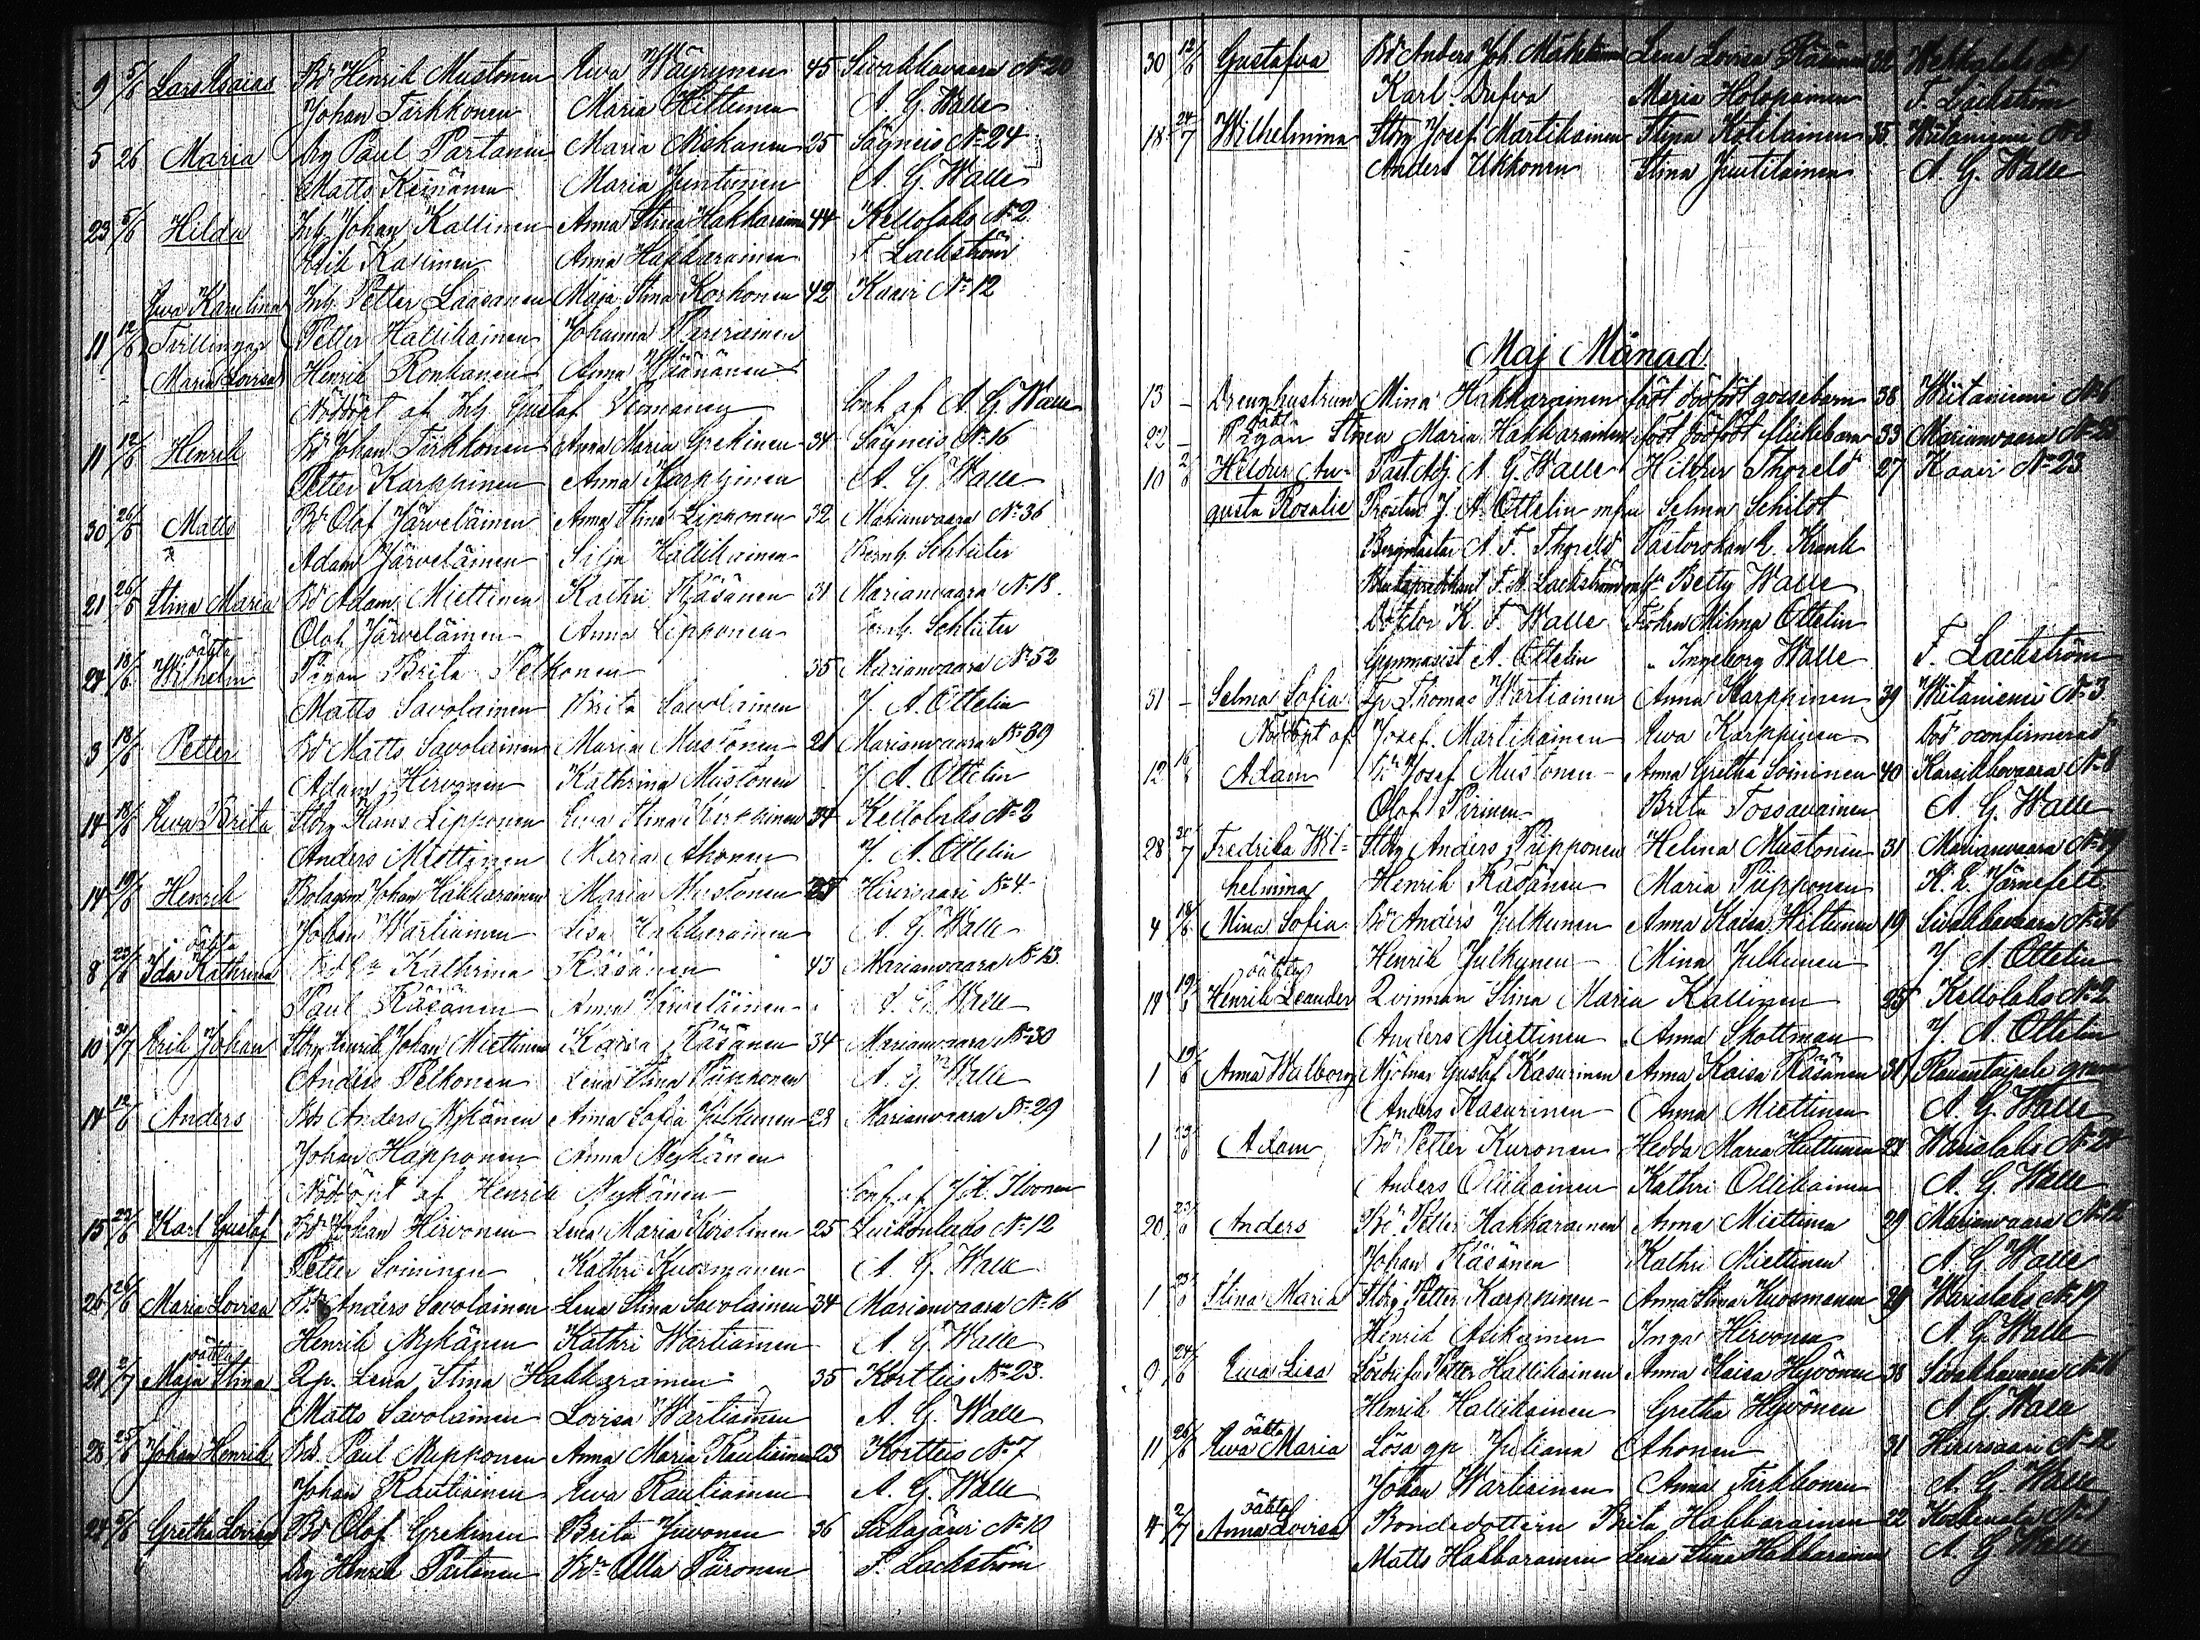 9 5/6 Lars Esaias Bd Henrik Mustonen Ewa Wäyrynen 45 Sivakkavaara No 20
Johan Tirkkonen Maria Hiltunen A. G. Walle
5 26 Maria Drg Paul Partanen Maria Niskanen 25 Säyneis No 24
Matts Keinänen Maria Juntunen A. G. Walle
23 5/6 Hilda Inh. Johan Kallinen Anna Stina Hakkarainen 44 Kellolaks No 2
Erik Kasurinen Anna Hakkarainen F. Lackström
Ewa Karolina Inh. Petter Laasanen Maja Stina Korhonen 42 Kaavi No 12
11 12/6 Tvillingar Petter Hallikainen Johanna
Maria Lovisa Henrik Ronkanen Anna Väänänen
Nöddöpt af Inh Gustaf Konf af A. G. Walle
11 12/6 Henrik Bd Johan Tirkkonen Anna Maria Grekinen 34 Säyneis No 16
Petter Karppinen Anna Karppinen A. G. Walle
30 26/6 Matts Bd Olof Järveläinen Anna Stina Lipponen 32 Marianvaara No 36
Adam Järveläinen Silja Hallikainen Bernh. Schlüter
21 26/6 Stina Maria Bd Adam Miettinen Kathri Räsänen 31 Marianvaara No 18
Olof Järveläinen Anna Lipponen Bernh. Schlüter
oäkta
24 18/6 Wilhelm Pigan Brita Pelkonen 35 Marianvaara No 52
Matts Savolainen Brita Savolainen J. A. Ottelin
3 18/6 Petter Bd Matts Savolainen Maria Mustonen 21 Marianvaara No 39
Adam Hirvonen Kathrina Mustonen J. A. Ottelin
14 18/6 Ewa Brita Stbg Hans Lipponen Ewa Stina 34 Kellolaks No 2
Anders Miettinen Maria Ahonen J. A. Ottelin
14 19/6 Henrik Bolagsm Johan Hakkarainen Maria Mustonen 25 Hirvisaari No 4
Johan Wartiainen Lisa Hakkarainen A. G. Walle
oäkta
8 23/6 Ida Kathrina Kathrina Räsänen 43 Marianvaara No 13
Paul Räsänen Anna Järveläinen A. G. Walle
10 30/7 Erik Johan Stbg Henrik Johan Miettinen Kaisa Räsänen 34 Marianvaara No 30
Anders Pelkonen Lena Stina Piipponen A. G. Walle
14 12/6 Anders Bd Anders Nykänen Anna Sofia Julkunen 28 Marianvaara No 29
Johan Happonen Anna Nykänen
Nöddöpt af Henrik Nykänen Konf. af Joh. Ilvonen
15 23/6 Karl Gustaf Bd Johan Hirvonen Lena Maria 25 Luikonlaks No 12
Petter Soininen Kathri Kuosmanen A. G. Walle
26 26/6 Maria Lovisa Bd Anders Savolainen Lena Stina Savolainen 34 Marianvaara No 16
Henrik Nykänen Kathri Wartiainen A. G. Walle
oäkta
21 2/7 Maja Stina Qp. Lena Stina Hakkarainen 35 Kortteis No 23
Matts Savolainen Lovisa Wartiainen A. G. Walle
28 25/6 Johan Henrik Bd Paul Nupponen Anna Maria Rautiainen 23 Kortteis No 7
Johan Rautiainen Ewa Rautiainen A. G. Walle
24 5/6 Gretha Lovisa Bd Olof Grekinen Brita Juvonen 36 Siikajärvi No 10
Drg Henrik Partanen Bda Ulla Piironen F. Lackström
30 12/6 Gustafva Bd Anders Joh. Lena Lovisa Räsänen 32
Karl Dufva Maria Holopainen F. Lackström
18 24/7 Wilhelmina Stbg Josef Martikainen Stina Kotilainen 35 Witaniemi No 3
Anders Ukkonen Stina Juutilainen A. G. Walle
Maj Månad
13 - Drenghustrun Mina Hakkarainen född dödfödt gossebarn 38 Wiitaniemi No 6
22 - Pigan Stina Maria Hakkarainen född dödfödt flickebarn 33 Marianvaara No 25
10 2/6 Hildur Au- Past. Adj. A. G. Walle Hildur Thoreld 27 Kaavi No 23
gusta Rosalie Prosten J. A. Ottelin m fru Selma Schildt
Bergmästar A. F. Thoreld Pastorskan E. Krank
F. A. Lackström m f. Betty Walle
Doktor K. F. Walle Fröken Milma Ottelin
Gymnasist A. Ottelin " Ingeborg Walle F. Lackström
31 - Selma Sofia Tp. Thomas Wartiainen Anna Karppinen 39 Witaniemi No 3
Nöddöpt af Josef Martikainen Ewa Karppinen Död oconfirmerad
12 16/6 Adam Bd Josef Mustonen Anna Gretha Soininen 40 Karsikkovaara No 8
Olof Pirinen Brita Tossavainen A. G. Walle
28 30/7 Fredrika Wil- Stbg Anders Piipponen Helena Mustonen 31 Marianvaara No 19
helmina Henrik Räsänen Maria Piipponen K. E. Järnefelt
4 18/6 Mina Sofia Bd Anders Julkunen Anna Kaisa Hiltunen 19 Sivakkavaara No 36
Henrik Julkunen Mina Julkunen J. A. Ottelin
oäkta
19/6 Henrik Leander Qvinnan Stina Maria Kallinen 25 Kellolaks No 2
Anders Miettinen Anna Skottman J. A. Ottelin
1 19/6 Anna Walborg Mjölnar Gustaf Kasurinen Anna Kaisa Räsänen 31
Anders Kasurinen Anna Miettinen A. G. Walle
1 23/6 Adam Bd Petter Kuronen Hedda Maria Hiltunen 21 Warislaks No 24
Anders Ollikainen Kathri Ollikainen A. G. Walle
20 23/6 Anders Bd Petter Hakkarainen Anna Miettinen 29 Marianvaara No 12
Johan Räsänen Kathri Miettinen A. G. Walle
1 23/6 Stina Maria Stbg Petter Karppinen Anna Stina Kuosmanen 29 Warislaks No 19
Henrik Asikainen Inga Hirvonen A. G. Walle
9 24/6 Ewa Lisa Petter Hallikainen Anna Kaisa Hyvönen 38 Sivakkavaara No 16
Henrik Hallikainen Gretha Hyvönen A. G. Walle
oäkta
11 26/6 Ewa Maria Lösa qp Juliana Ahonen 31 Hirvisaari No 2
Johan Wartiainen Anna Tirkkonen A. G. Walle
oäkta
4 2/7 Anna Lovisa Bondedottern Brita Hakkarainen 22
Matts Hakkarainen Lena Stina Hakkarainen A. G. Walle